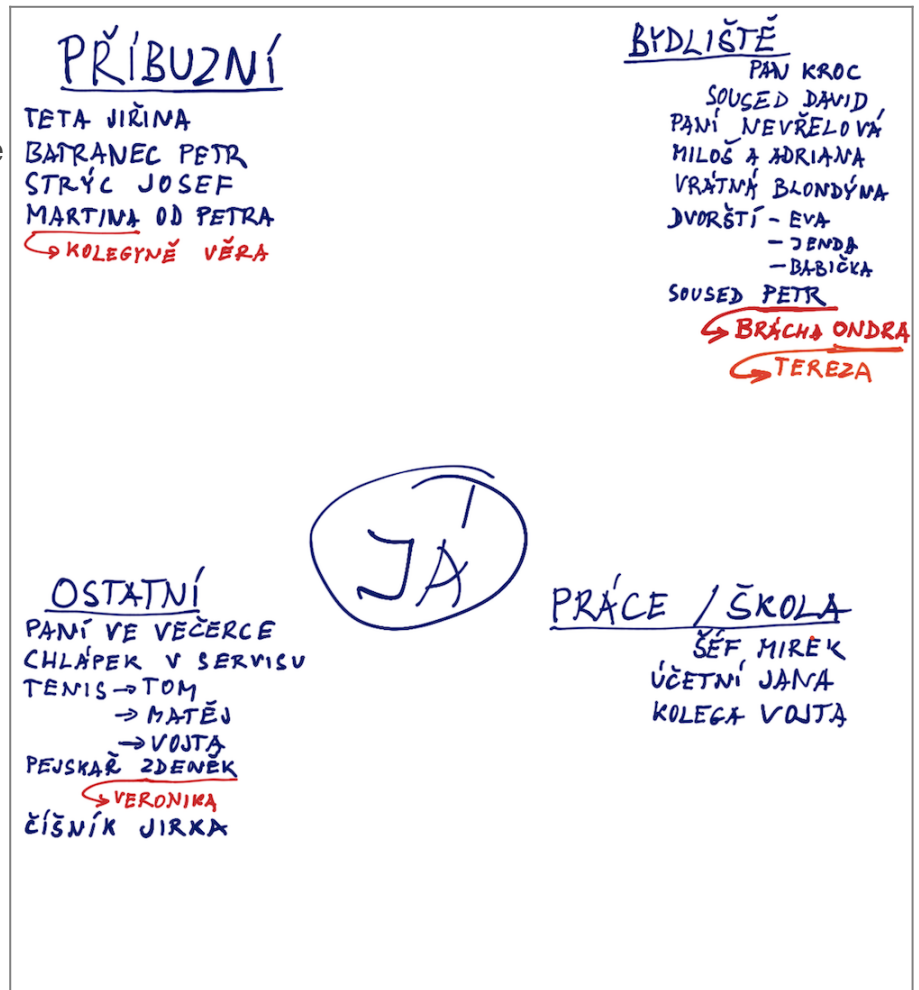 PŘÍBUZNÍ
TETA JIŘINA
BATRANEC PETR
STRÝC JOSEF
MARTINA OD PETRA
KOLEGYNĚ VĚRA
BYDLIŠTĚ
PAN KROC
SOUSED DAVID
PANÍ NEVŘELOVÁ
MILOŠ A ADRIANA
VRÁTNÁ BLONDÝNA
DVORŠTÍ - EVA
- JENDA
- BABIČKA
SOUSED PETR
BRÁCHA ONDRA
TEREZA
JÁ
OSTATNÍ
PANÍ VE VEČERCE
CHLÁPEK V SERVISU
TENIS → TOM
→ MATĚJ
→ VOJTA
PEJSKAŘ ZDENĚK
VERONIKA
ČÍŠNÍK JIRKA
PRÁCE / ŠKOLA
ŠÉF MIREK
ÚČETNÍ JANA
KOLEGA VOJTA